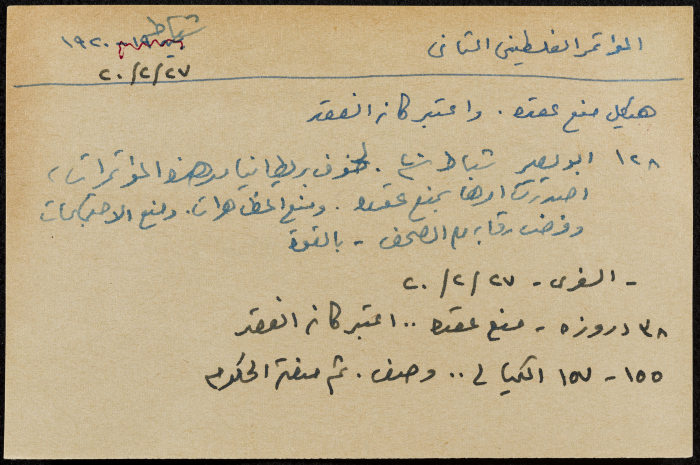 المؤتمر الفلسطيني الثاني
شباط ١٩٢٠
٢٠/٢/٢٧
هيكل منع عقده. واعتبر كانه انعقد
١٢٨ ابو يصير شباط. لخوف بريطانيا من هذه المؤتمرات،
اصدرت امرها بمنع عقده. ومنع المظاهرات. ومنع الاجتماعات
وفرض رقابه على الصحف - بالقوة
- السفرى - ٢٠/٢/٢٧
٣٨ دروزه - منع عقده .. اعتبر كانه انعقد
١٥٥ - ١٥٧ الكيالي .. وصف. ثم منعته الحكومه